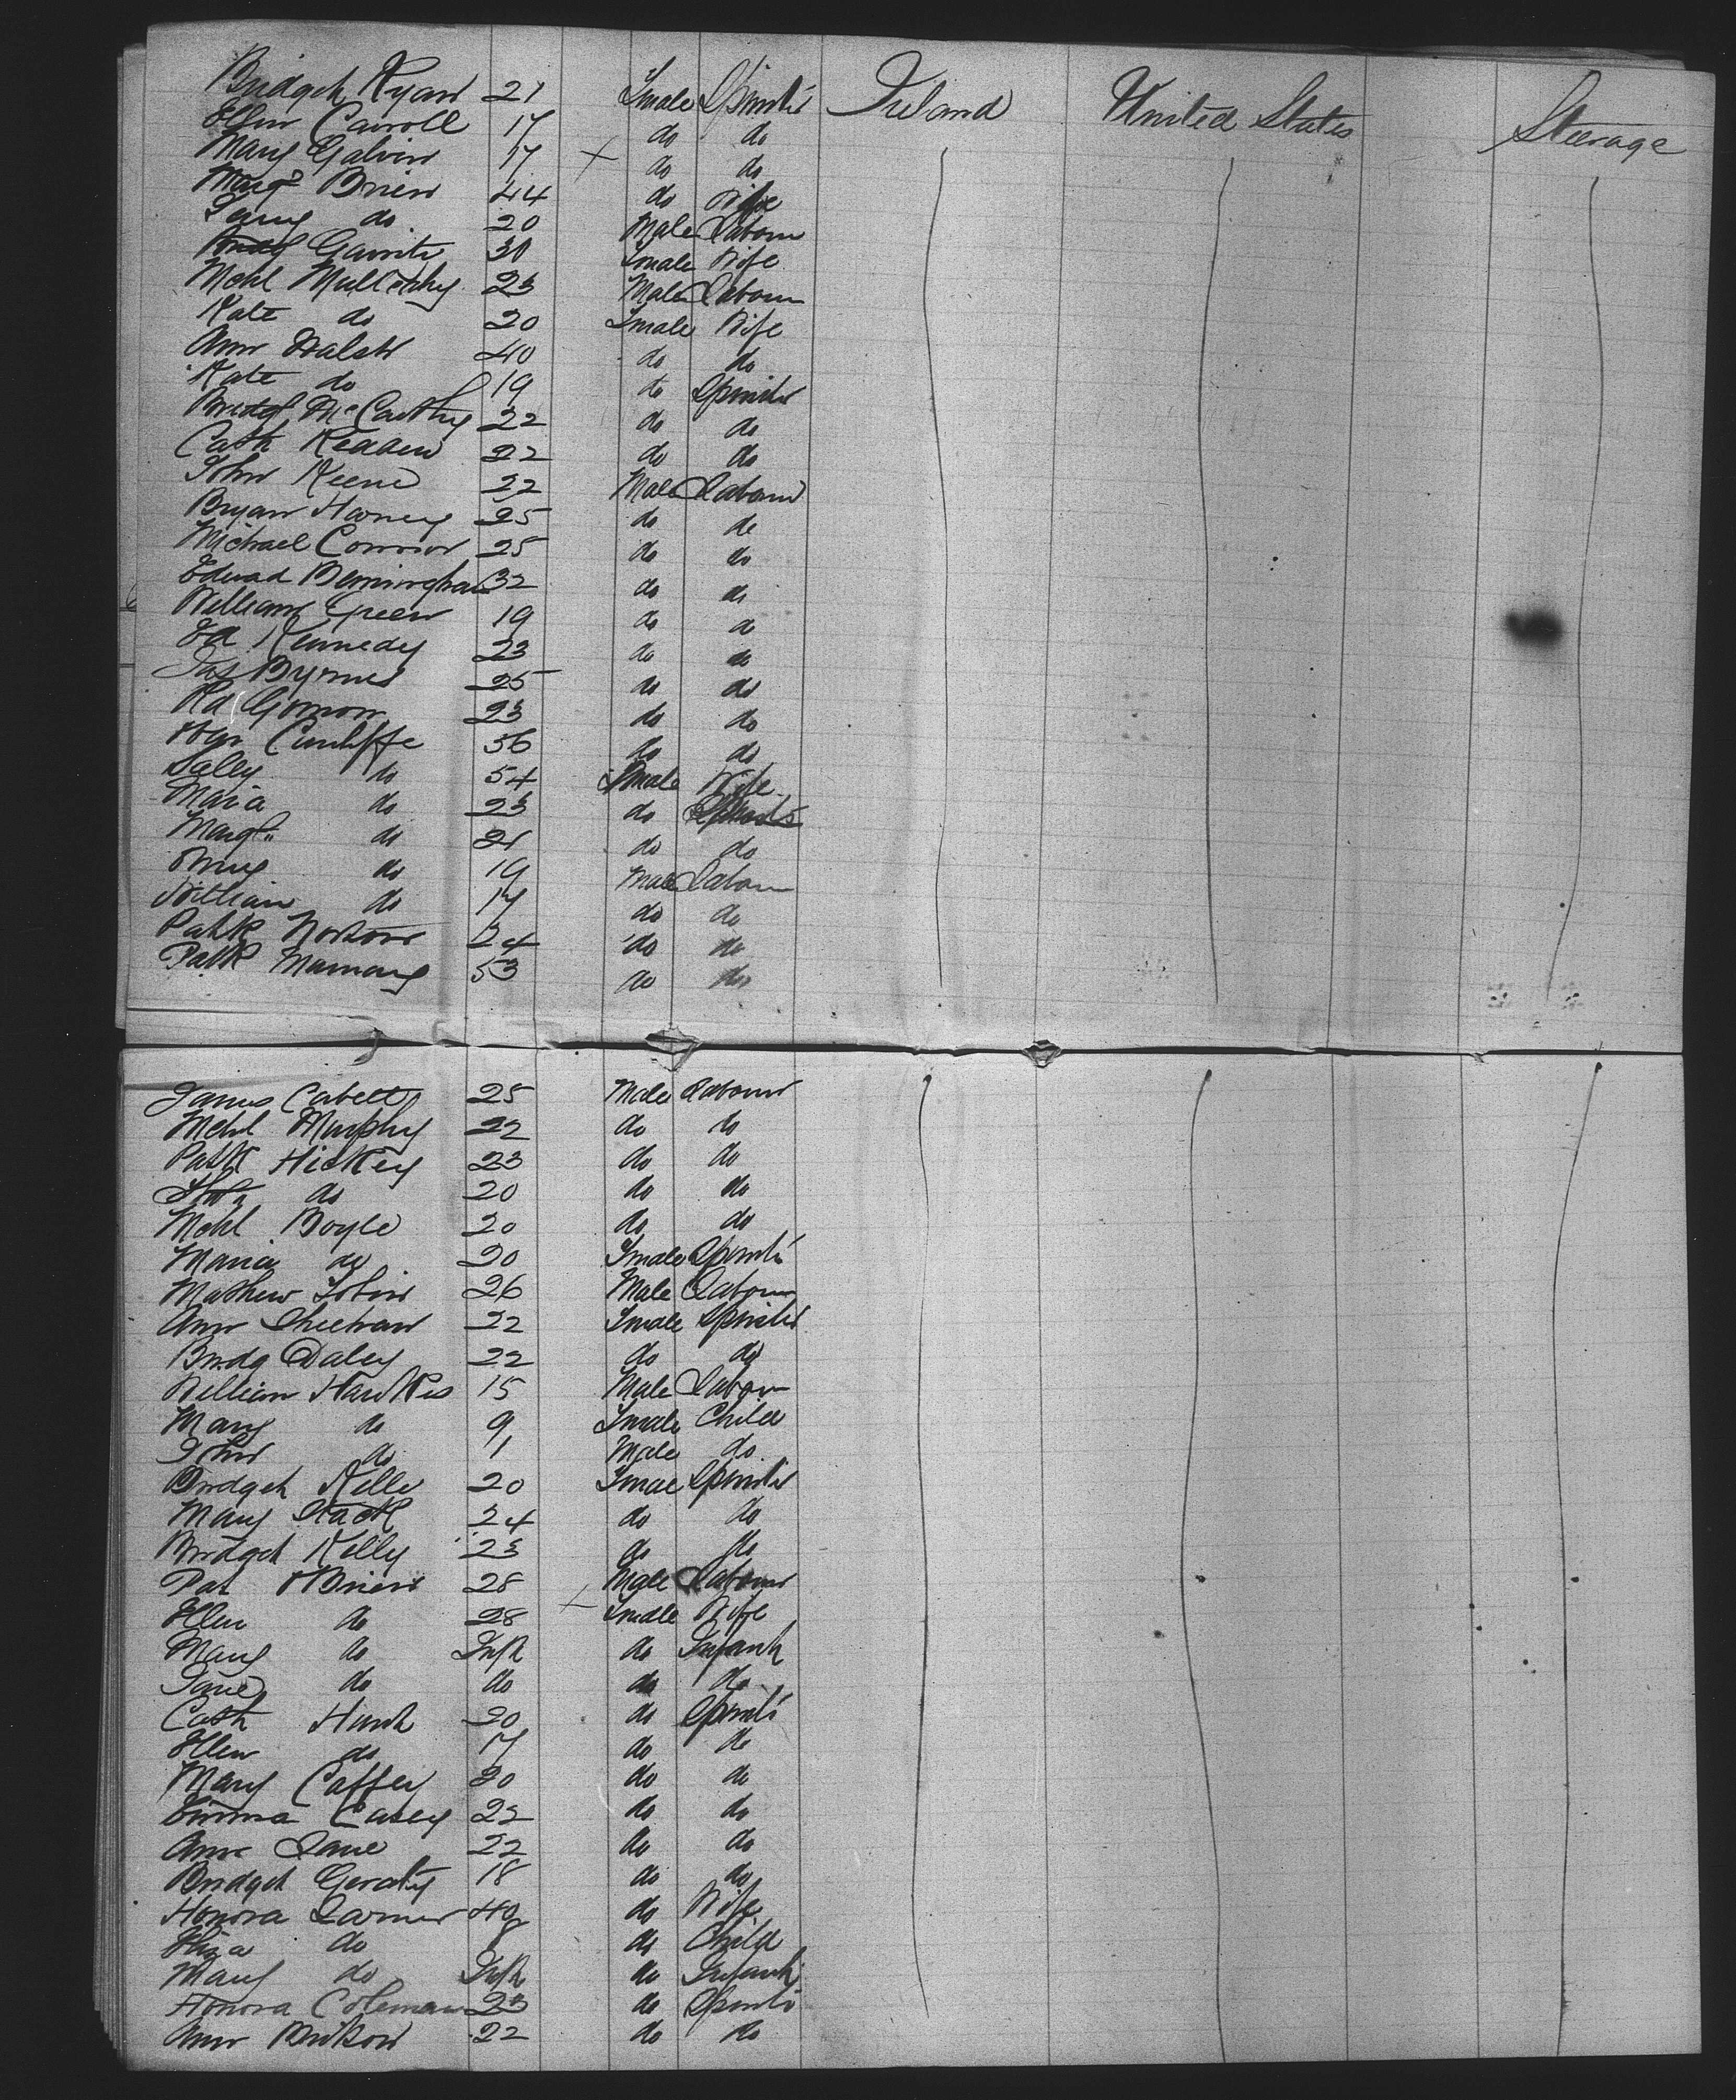 Bridget Ryan 21 Fmale Spinster Ireland United States Steerage
Ellen Carroll 17 do do
Mary Galvin 17 × do do
Margt Brien 44 do Wife
do 20 Male Labour
Bridg 30 Fmale Wife
Mchl 23 Male Labour
Kate do 20 Fmale Wife
Ann Walsh 40 do do
Kate do 19 do Spinster
Bridgt McCarthy 22 do do
Cath Readen 22 do do
John Keene 22 Male Labour
Bryan Haney 25 do do
Michael Connor 25 do do
Edward Bermingham 32 do do
William Green 19 do do
Ed Kennedy 23 do do
Jas Byrnes 25 do do
Rd 23 do do
Cunliffe 56 do do
Sally do 54 Fmale Wife
Maria do 23 do
Margt do 21 do do
do 19 Male Labour
William do 17 do do
Patk 24 do do
Patk 53 do do
James 25 Male Labour
Mchl Murphy 22 do do
Patk Hickey 23 do do
do 20 do do
Mchl Boyle 20 do do
Maria do 20 Fmale Spinstr
Mathew Tobin 26 Male Labour
Ann Sheehan 22 Fmale Spinster
Bridg Daley 22 do do
William Hawkes 15 Male Labour
Mary do 9 Fmale Child
John do 1 Male do
Bridget Kelle 20 Fmae Spinster
Mary Stack 24 do do
Bridget Kelly 23 do do
Pat OBrien 28 Male Labour
Ellen do 28 × Fmale Wife
Mary do Inft do Infant
Jane do do do do
Cath Hunt 20 do Spinstr
Ellen do 17 do do
Mary Caffey 20 do do
Emma Casey 22 do do
Ann Lane 22 do do
Bridget Geraty 18 do do
Honora Larner 40 do Wife
Eliza do 8 do Child
Mary do Inft do Infant
Honora Coleman 23 do Spinstr
Ann 22 do do